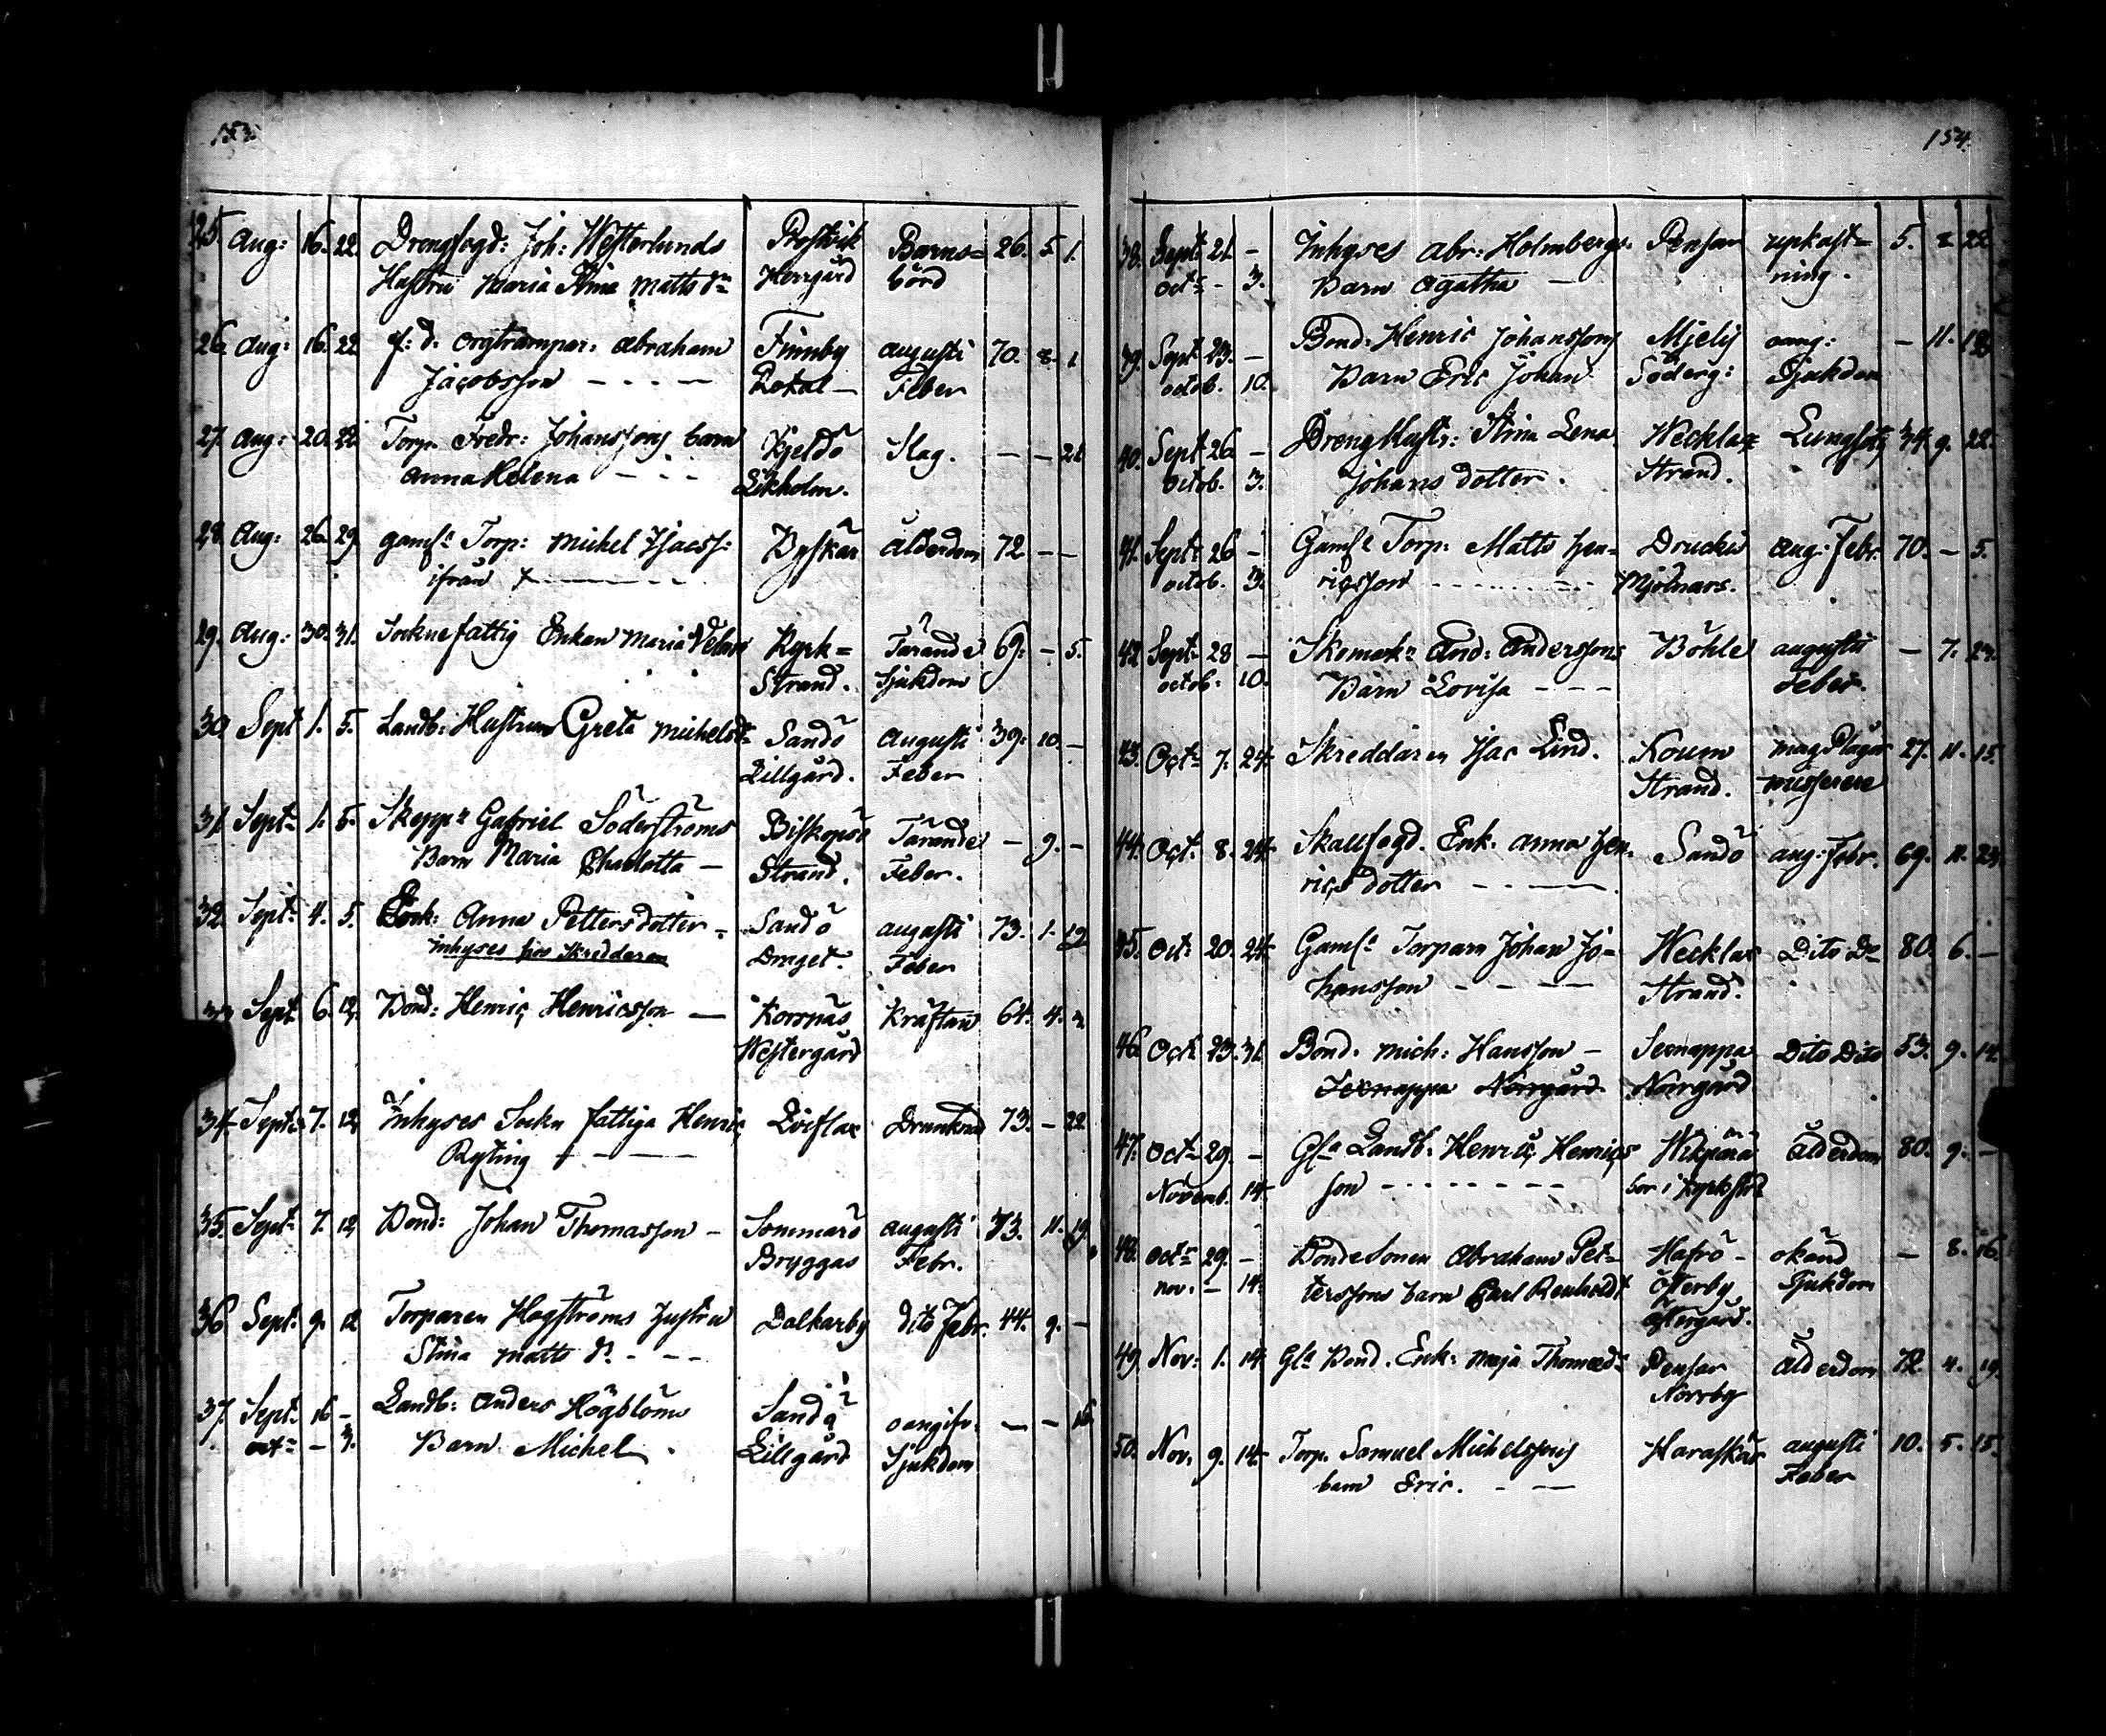 153.
25. Aug: 16. 22. Drengfogd: Joh: Westerlunds Prostvik Barns= 26. 5. 1.
Hustru Maria Stina Matts dr Herrgård börd
26. Aug: 16. 22. f: d: orgtrampar: Abraham Finnby augusti 70. 8. 1.
Jacobsson - - - - Rekal - Feber
27. Aug: 20. 22. Torp. Fredr: Johanssons barn Kjeldö Slag. - - 21
Anna Helena - - - Ekholm.
28. Aug: 26. 29. gamle Torp: Michel Isacss: Byskär ålderdom 72 - -
ifrån
29. Aug: 30. 31. Socknefattig Enkan Maria Kyrk= Tärande 69. - 5.
Strand. Sjukdom
30. Sept 1. 5. Landb: Hustrun Greta Michelsdr Sandö Augusti 39. 10. -
Lillgård. Feber
31. Sept: 1. 5. Skepp: Gabriel Söderströms Biskopsö Tärande - 9. -
Barn Maria Charlotta - Strand. Feber.
32. Sept: 4. 5. Enk: Anna Pettersdotter - Sandö augusti 73. 1. 12
inhyses hos Skreddaren Draget. Feber
33. Sept 6. 12. Bond: Henric Henricsson - Korsnäs Kräftan 64. 4.
Westergård
34. Sept: 7. 12. Inhyses Sockn fattiga Henric Drunknad 73. - 22.
Ryting - - -
35. Sept: 7. 12 Bond: Johan Thomasson - Sommarö augusti 73. 11. 19.
Bryggas Febr.
36 Sept: 9. 12 Torparen Hagströms hustru Dalkarby dito Febr. 44. 9. -
Stina Matts dr - - -
37. Sept: 16 - Landb: Anders Högbloms Sandö oangifv: - - 16.
oct: - 3. Barn Michel. Lillgård Sjukdom
154.
38. Sept: 21. - Inhyses Abr: Holmbergs Pensar upkast= 5. 8 22
oct: - 3. Barn Agatha - ning.
39. Sept 23. - Bond. Henric Johanssons Mjelis oang: - 11.
octob. 10. Barn Eric Johan Söderg: Sjukdom
40. Sept 26 - Dreng Hustr: Stina Lena Wecklax Lungsot 34. 9. 22.
octob. 3. Johans dotter. Strand.
41. Sept: 26 - Gamle Torp: Matts Hen- Druckis aug: Febr. 70. - 5.
octob. 3. ricsson - - - Mjölnars.
42. Sept: 28 - Skomak: And: Anderssons Böhle augusti - 7. 24.
octob: 10. Barn Lovisa - - - Feber.
43. Oct: 7. 24. Skreddaren Isac Lind. Koum magplågor 27. 11. 15.
Strand. misserere
44. Oct: 8. 24. Skallfogd. Enk. Anna Hen- Sandö aug: Febr. 69. 11. 23.
rics dotter - - -
45. Oct: 20. 24. Gamle Torparn Johan Jo- Wecklax Dito Do 80. 6. -
hansson - - - Strand.
46. Oct 23. 31 Bond. Mich: Hansson - Sexnappa Dito Dito 53. 9. 14.
Sexnappa Norrgård Norrgård
47. Oct: 29. - Gla Landb: Henric Henrics Ålderdom 80. 9. -
Novemb. 14. son - - - bor i
48. oct: 29. - Bondesonen Abraham Pet- Hafrö - okänd - 8. 16.
nov. - 14. terssons barn Carl Renholdt Österby Sjukdom
Östergård.
49. Nov: 1. 14. Gla Bond. Enk: Maja Thomædr Pensar Ålderdom 72. 4. 19.
Norrby
50. Nov. 9. 14. Torp. Samuel Michelssons Haraskär augusti 10. 5. 15.
barn Eric. - - Feber